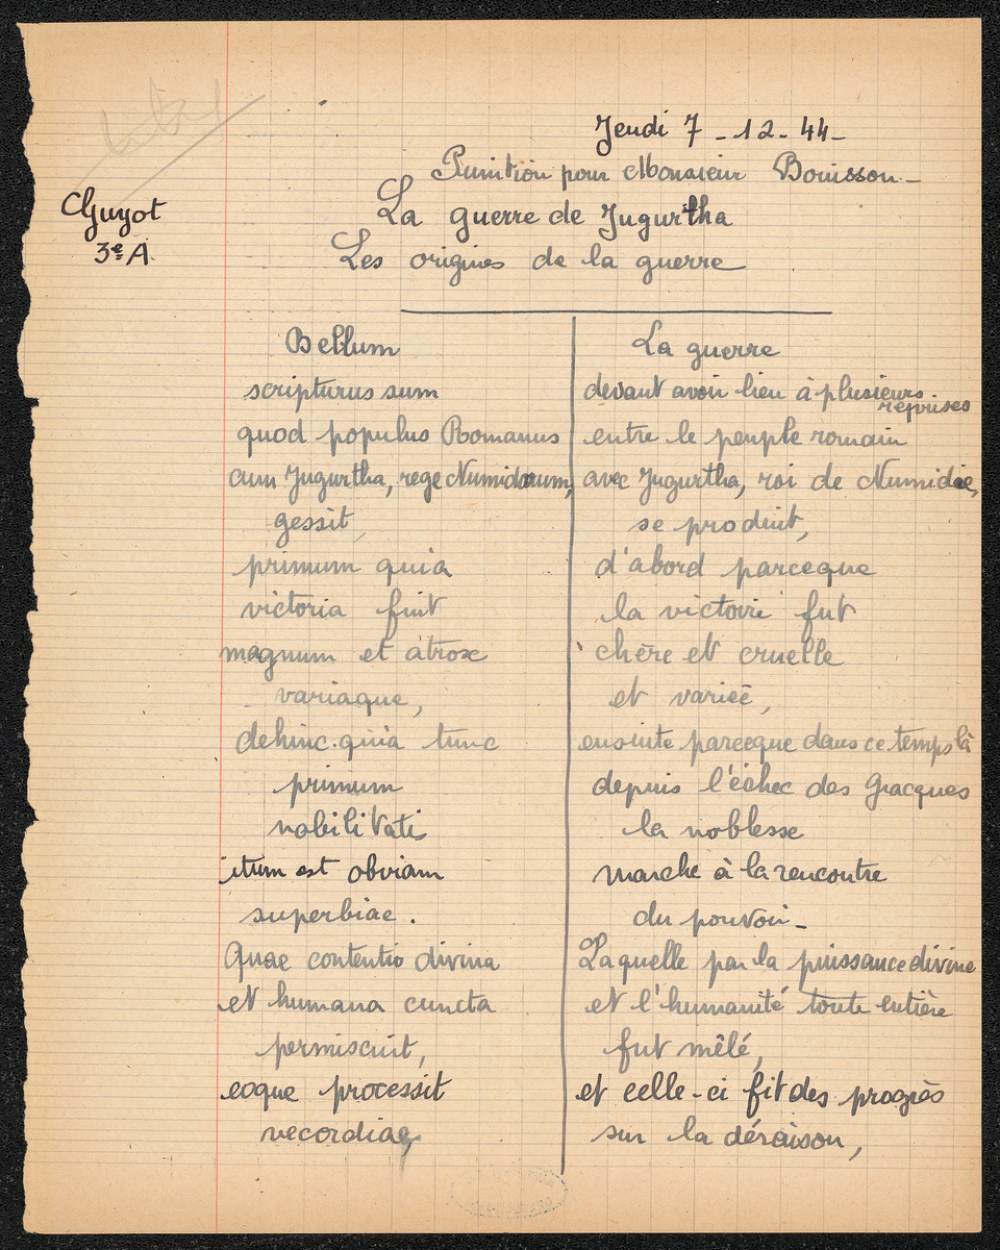 Jeudi 7 - 12 - 44 -
Punition pour Monsieur Bouisson -
Guyot
3e A
La guerre de Jugurtha
Les origines de la guerre
Bellum
scripturus sum
quod populus Romanus
cum Jugurtha, rege Numidarum,
gessit,
primum quia
victoria fuit
magnum et atrox
variaque,
dehinc quia tunc
primum
nobilitati
itum est obviam
superbiae.
Quae contentio divina
et humana cuncta
permiscuit,
eoque processit
vecordiae,
La guerre
devant avoir lieu à plusieurs
reprises
entre le peuple romain
avec Jugurtha, roi de Numidie,
se produit,
d'abord parceque
la victoire fut
chère et cruelle
et variée,
ensuite parceque dans ce temps là
depuis l'échec des Gracques
la noblesse
marche à la rencontre
du pouvoir -
Laquelle par la puissance divine
et l'humanité toute entière
fut mêlé,
et celle-ci fit des progrès
sur la déraison,